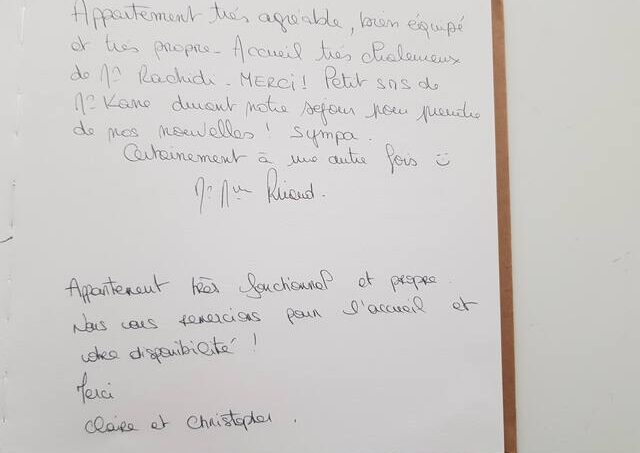 Appartement très agréable, bien équipé
et très propre - Accueil très chaleureux
de Mr Rachidi - MERCI ! Petit sms de
Mr Kane durant notre séjour pour prendre
de nos nouvelles ! Sympa.
Certainement à une autre fois :)
Mr Mme
Appartement très fonctionnel et propre.
Nous vous remercions pour l'accueil et
votre disponibilité !
Merci
Claire et Christopher.